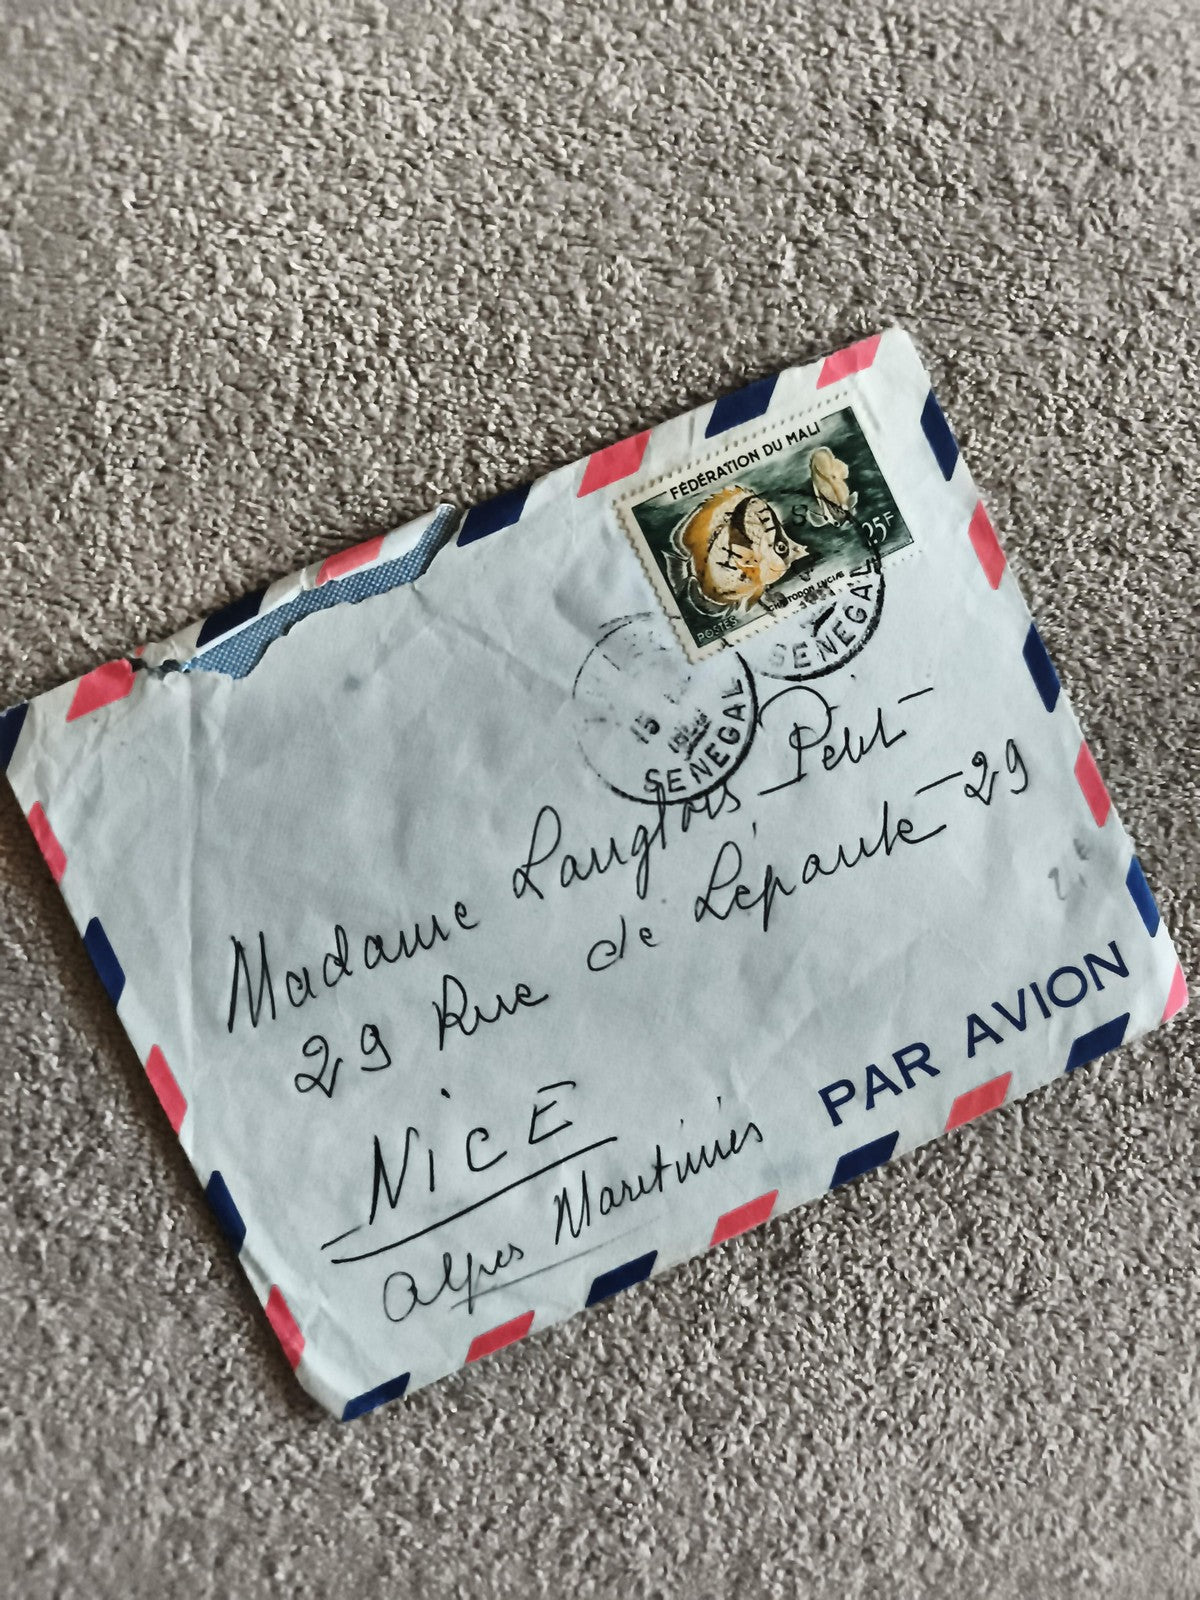 FÉDÉRATION DU MALI
25F
POSTES
SENEGAL
15
SENEGAL
Madame Langlois-Petit-
29 Rue de Lépante - 29
NICE
Alpes Maritimes
PAR AVION